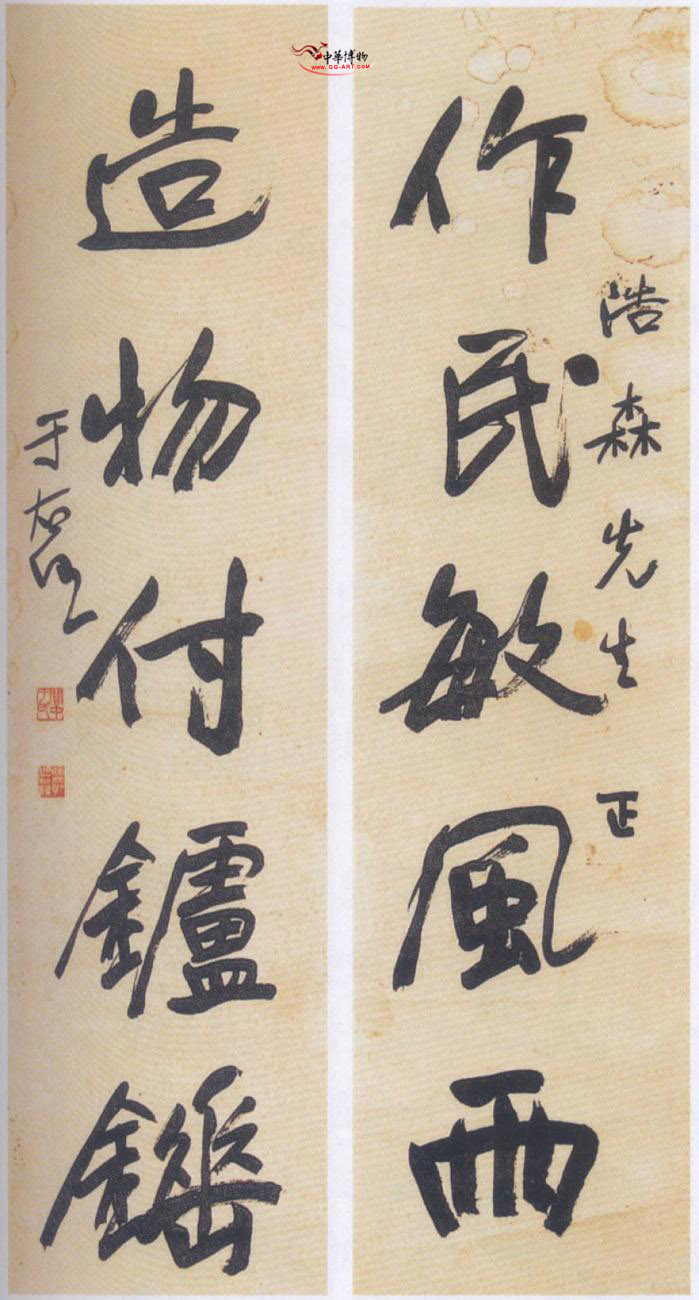 中華博物
WWW.GG-ART.COM
浩森先生 正
作民敏風雨
造物付鑪錘
于右任